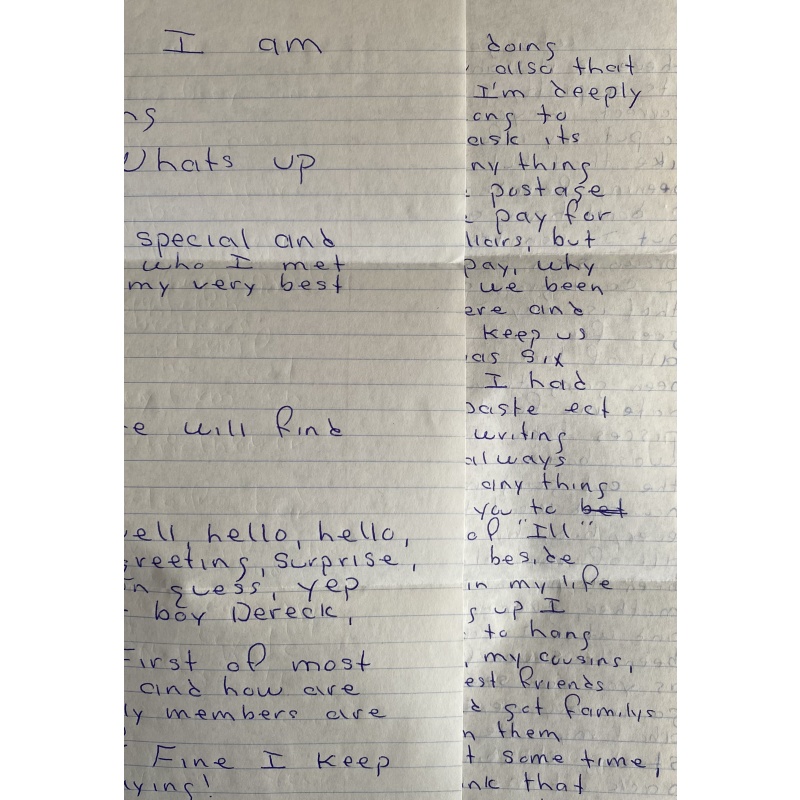 I am
ng
Whats up
special and
who I met
my very best
e will find
ell, hello, hello,
reeting, surprise,
n guess, yep
boy Dereck,
First of most
and how are
ly members are
Fine I keep
ying!
doing
also that
I'm deeply
ong to
ask its
ny thing
postage
pay for
llars, but
pay, why
we been
ere and
keep us
as six
I had
paste ect
writing
always
any thing
you to bet
of "Ill"
beside
in my life
g up I
to hang
my cousins,
est friends
d got familys
n them
t some time,
nk that